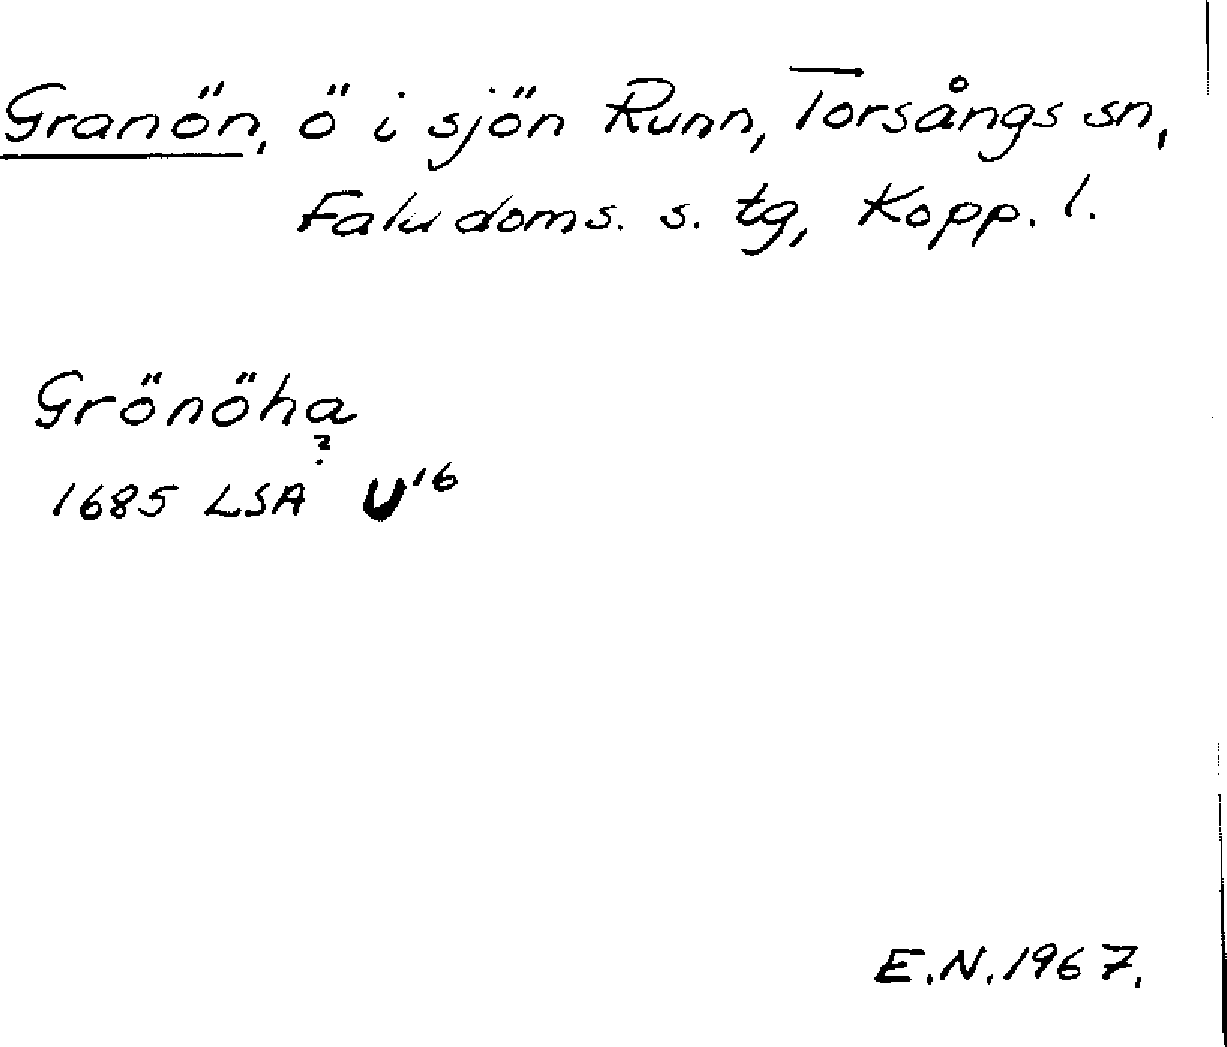 Granön, ö i sjön Runn, Torsångs sn,
Falu doms. s. tg, Kopp. l.
Grönöha
?
1685 LSA U16
E.N. 1967.